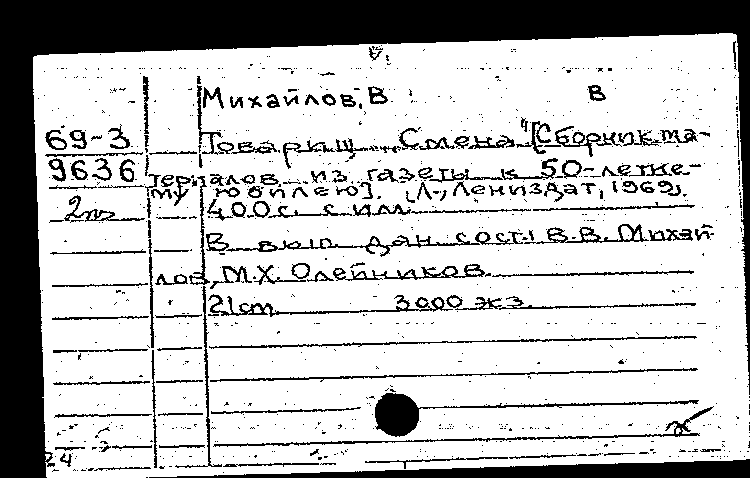 Михайлов, В В
69-3 Товарищ „Смена“ [Сборник ма-
9636 териалов из газеты к 50-летне-
му юбилею]. [Л., Лениздат, 1969].
400 с. с илл.
В вып. дан. сост.: В.В. Михай-
лов, М.Х. Олейников.
21 cm. 3000 экз.
24